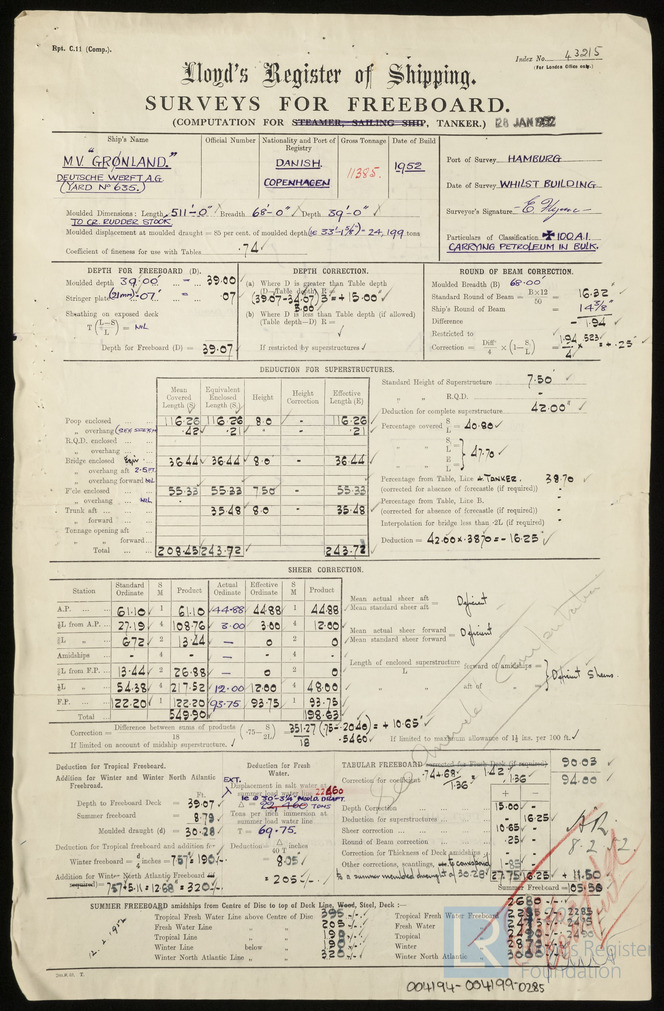 Rpt. C.11 (Comp.).
Index No. 43215
(For London Office only.)
Lloyd's Register of Shipping.
SURVEYS FOR FREEBOARD.
(COMPUTATION FOR STEAMER, SAILING SHIP, TANKER.) 28 JAN 1952
Ship's Name
Official Number
Nationality and Port of Registry
Gross Tonnage
Date of Build
M.V. "GRØNLAND."
DEUTSCHE WERFT A.G.
(YARD No 635.)
DANISH.
COPENHAGEN
11385.
1952
Port of Survey HAMBURG
Date of Survey WHILST BUILDING
Surveyor's Signature
Particulars of Classification ✠ 100.A.1.
CARRYING PETROLEUM IN BULK.
Moulded Dimensions: Length 511'-0" Breadth 68'-0" Depth 39'-0"
TO CR. RUDDER STOCK
Moulded displacement at moulded draught = 85 per cent. of moulded depth 24,199 tons
Coefficient of fineness for use with Tables .74
DEPTH FOR FREEBOARD (D).
Moulded depth 39.00' = 39.00
Stringer plate (21mm) .07' = .07
Sheathing on exposed deck
T (L-S / L) = NIL
Depth for Freeboard (D) = 39.07
DEPTH CORRECTION.
(a) Where D is greater than Table depth
(D—Table depth) R =
(39.07-34.07) 3 = +15.00"
5.00
(b) Where D is less than Table depth (if allowed)
(Table depth—D) R =
If restricted by superstructures
ROUND OF BEAM CORRECTION.
Moulded Breadth (B) 68.00'
Standard Round of Beam = B×12 / 50 = 16.32
Ship's Round of Beam = 14 3/8"
Difference = 1.94
Restricted to
Correction = Diff. / 4 × (1 - S₁ / L) = 1.94 / 4 × .523 = +.25"
DEDUCTION FOR SUPERSTRUCTURES.
Mean Covered Length (S) Equivalent Enclosed Length (S₁) Height Height Correction Effective Length (E)
Poop enclosed 116.26 116.26 8.0 - 116.26
„ overhang .42 .21 „ - .21
R.Q.D. enclosed
„ overhang
Bridge enclosed 36.44 36.44 8.0 - 36.44
„ overhang aft
„ overhang forward NIL
F'cle enclosed 55.33 55.33 7.50 - 55.33
„ overhang NIL
Trunk aft 35.48 8.0 - 35.48
„ forward
Tonnage opening aft
„ „ forward
Total 208.45 243.72 243.72
Standard Height of Superstructure 7.50'
„ „ R.Q.D. -
Deduction for complete superstructure 42.00"
Percentage covered S / L = 40.80
S₁ / L =
E / L = } 47.70
Percentage from Table, Line TANKER. 38.70
(corrected for absence of forecastle (if required))
Percentage from Table, Line B. -
(corrected for absence of forecastle (if required)) -
Interpolation for bridge less than .2L (if required) -
Deduction = 42.00 × .3870 = - 16.25"
SHEER CORRECTION.
Station Standard Ordinate S M Product Actual Ordinate Effective Ordinate S M Product
A.P. 61.10 1 61.10 44.88 44.88 1 44.88
⅙L from A.P. 27.19 4 108.76 3.00 3.00 4 12.00
⅓L „ 6.72 2 13.44 — 0 2 0
Amidships - 4 - - - 4 -
⅓L from F.P. 13.44 2 26.88 — 0 2 0
⅙L „ 54.38 4 217.52 12.00 12.00 4 48.00
F.P. 122.20 1 122.20 93.75 93.75 1 93.75
Total 549.90 198.63
Mean actual sheer aft / Mean standard sheer aft = Deficient
Mean actual sheer forward / Mean standard sheer forward = Deficient
Length of enclosed superstructure forward of amidships / L =
„ „ aft of „ = } Deficient Sheers.
Correction = Difference between sums of products / 18 (.75 - S / 2L) = 351.27 / 18 (.75-.2040) = +10.65"
.5460
If limited on account of midship superstructure.
If limited to maximum allowance of 1½ ins. per 100 ft.
Amended Computation
Deduction for Tropical Freeboard.
Addition for Winter and Winter North Atlantic Freeboard.
Ft.
Depth to Freeboard Deck = 39.07
Summer freeboard = 8.79
Moulded draught (d) = 30.28
Deduction for Tropical freeboard and addition for Winter freeboard = d / 4 inches = 7.57" 190
Addition for Winter North Atlantic Freeboard (if required) = 7.57 + 5.11 = 12.68 = 320
Deduction for Fresh Water.
EXT.
Displacement in salt water at summer load water line
Δ = 22,460 TONS
Tons per inch immersion at summer load water line
T = 69.75.
Deduction = Δ / 40 T inches
= 8.05"
= 205
TABULAR FREEBOARD 90.03
Correction for coefficient .74+.68 / 1.36 = 1.42 / 1.36 94.00
+ -
Depth Correction 15.00 -
Deduction for superstructures - 16.25
Sheer correction 10.65 -
Round of Beam correction .25 -
Correction for Thickness of Deck amidships - -
Other corrections, scantlings, etc. to correspond 1.85
to a summer moulded draught of 30.28'
27.75 16.25 + 11.50
Summer Freeboard = 105.50
8.2.52
SUMMER FREEBOARD amidships from Centre of Disc to top of Deck Line, Wood, Steel, Deck :— 2680
Tropical Fresh Water Line above Centre of Disc 395
Fresh Water Line „ „ 205
Tropical Line „ „ 190
Winter Line below „ 190
Winter North Atlantic Line „ „ 320
Tropical Fresh Water Freeboard 2285
Fresh Water „ 2475
Tropical „ 2490
Winter „ 2870
Winter North Atlantic „ 3000
12.2.1952
LR
Lloyd's Register
Foundation
004194-004199-0285